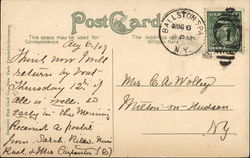 Post Card
This space may be used for
Correspondence
The address
BALLSTON SPA
AUG 6
N.Y.
Aug 6/09
Think now I will
return by boat
Thursday 12th if
all is well. so
early in the morning
Received a postal
from Sarah
Mrs C A Wolley
Milton-on-Hudson
NY